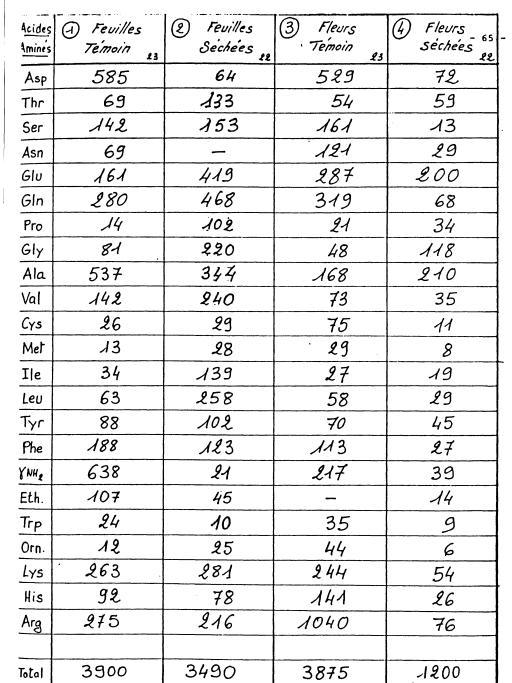 Acides Aminés | ① Feuilles Témoin 23 | ② Feuilles Séchées 22 | ③ Fleurs Témoin 23 | ④ Fleurs séchées 22 - 65 -
Asp | 585 | 64 | 529 | 72
Thr | 69 | 133 | 54 | 59
Ser | 142 | 153 | 161 | 13
Asn | 69 | — | 121 | 29
Glu | 161 | 419 | 287 | 200
Gln | 280 | 468 | 319 | 68
Pro | 14 | 102 | 21 | 34
Gly | 81 | 220 | 48 | 118
Ala | 537 | 344 | 168 | 210
Val | 142 | 240 | 73 | 35
Cys | 26 | 29 | 75 | 11
Met | 13 | 28 | 29 | 8
Ile | 34 | 139 | 27 | 19
Leu | 63 | 258 | 58 | 29
Tyr | 88 | 102 | 70 | 45
Phe | 188 | 123 | 113 | 27
γNH₂ | 638 | 21 | 217 | 39
Eth. | 107 | 45 | – | 14
Trp | 24 | 10 | 35 | 9
Orn. | 12 | 25 | 44 | 6
Lys | 263 | 281 | 244 | 54
His | 92 | 78 | 141 | 26
Arg | 275 | 216 | 1040 | 76
Total | 3900 | 3490 | 3875 | 1200